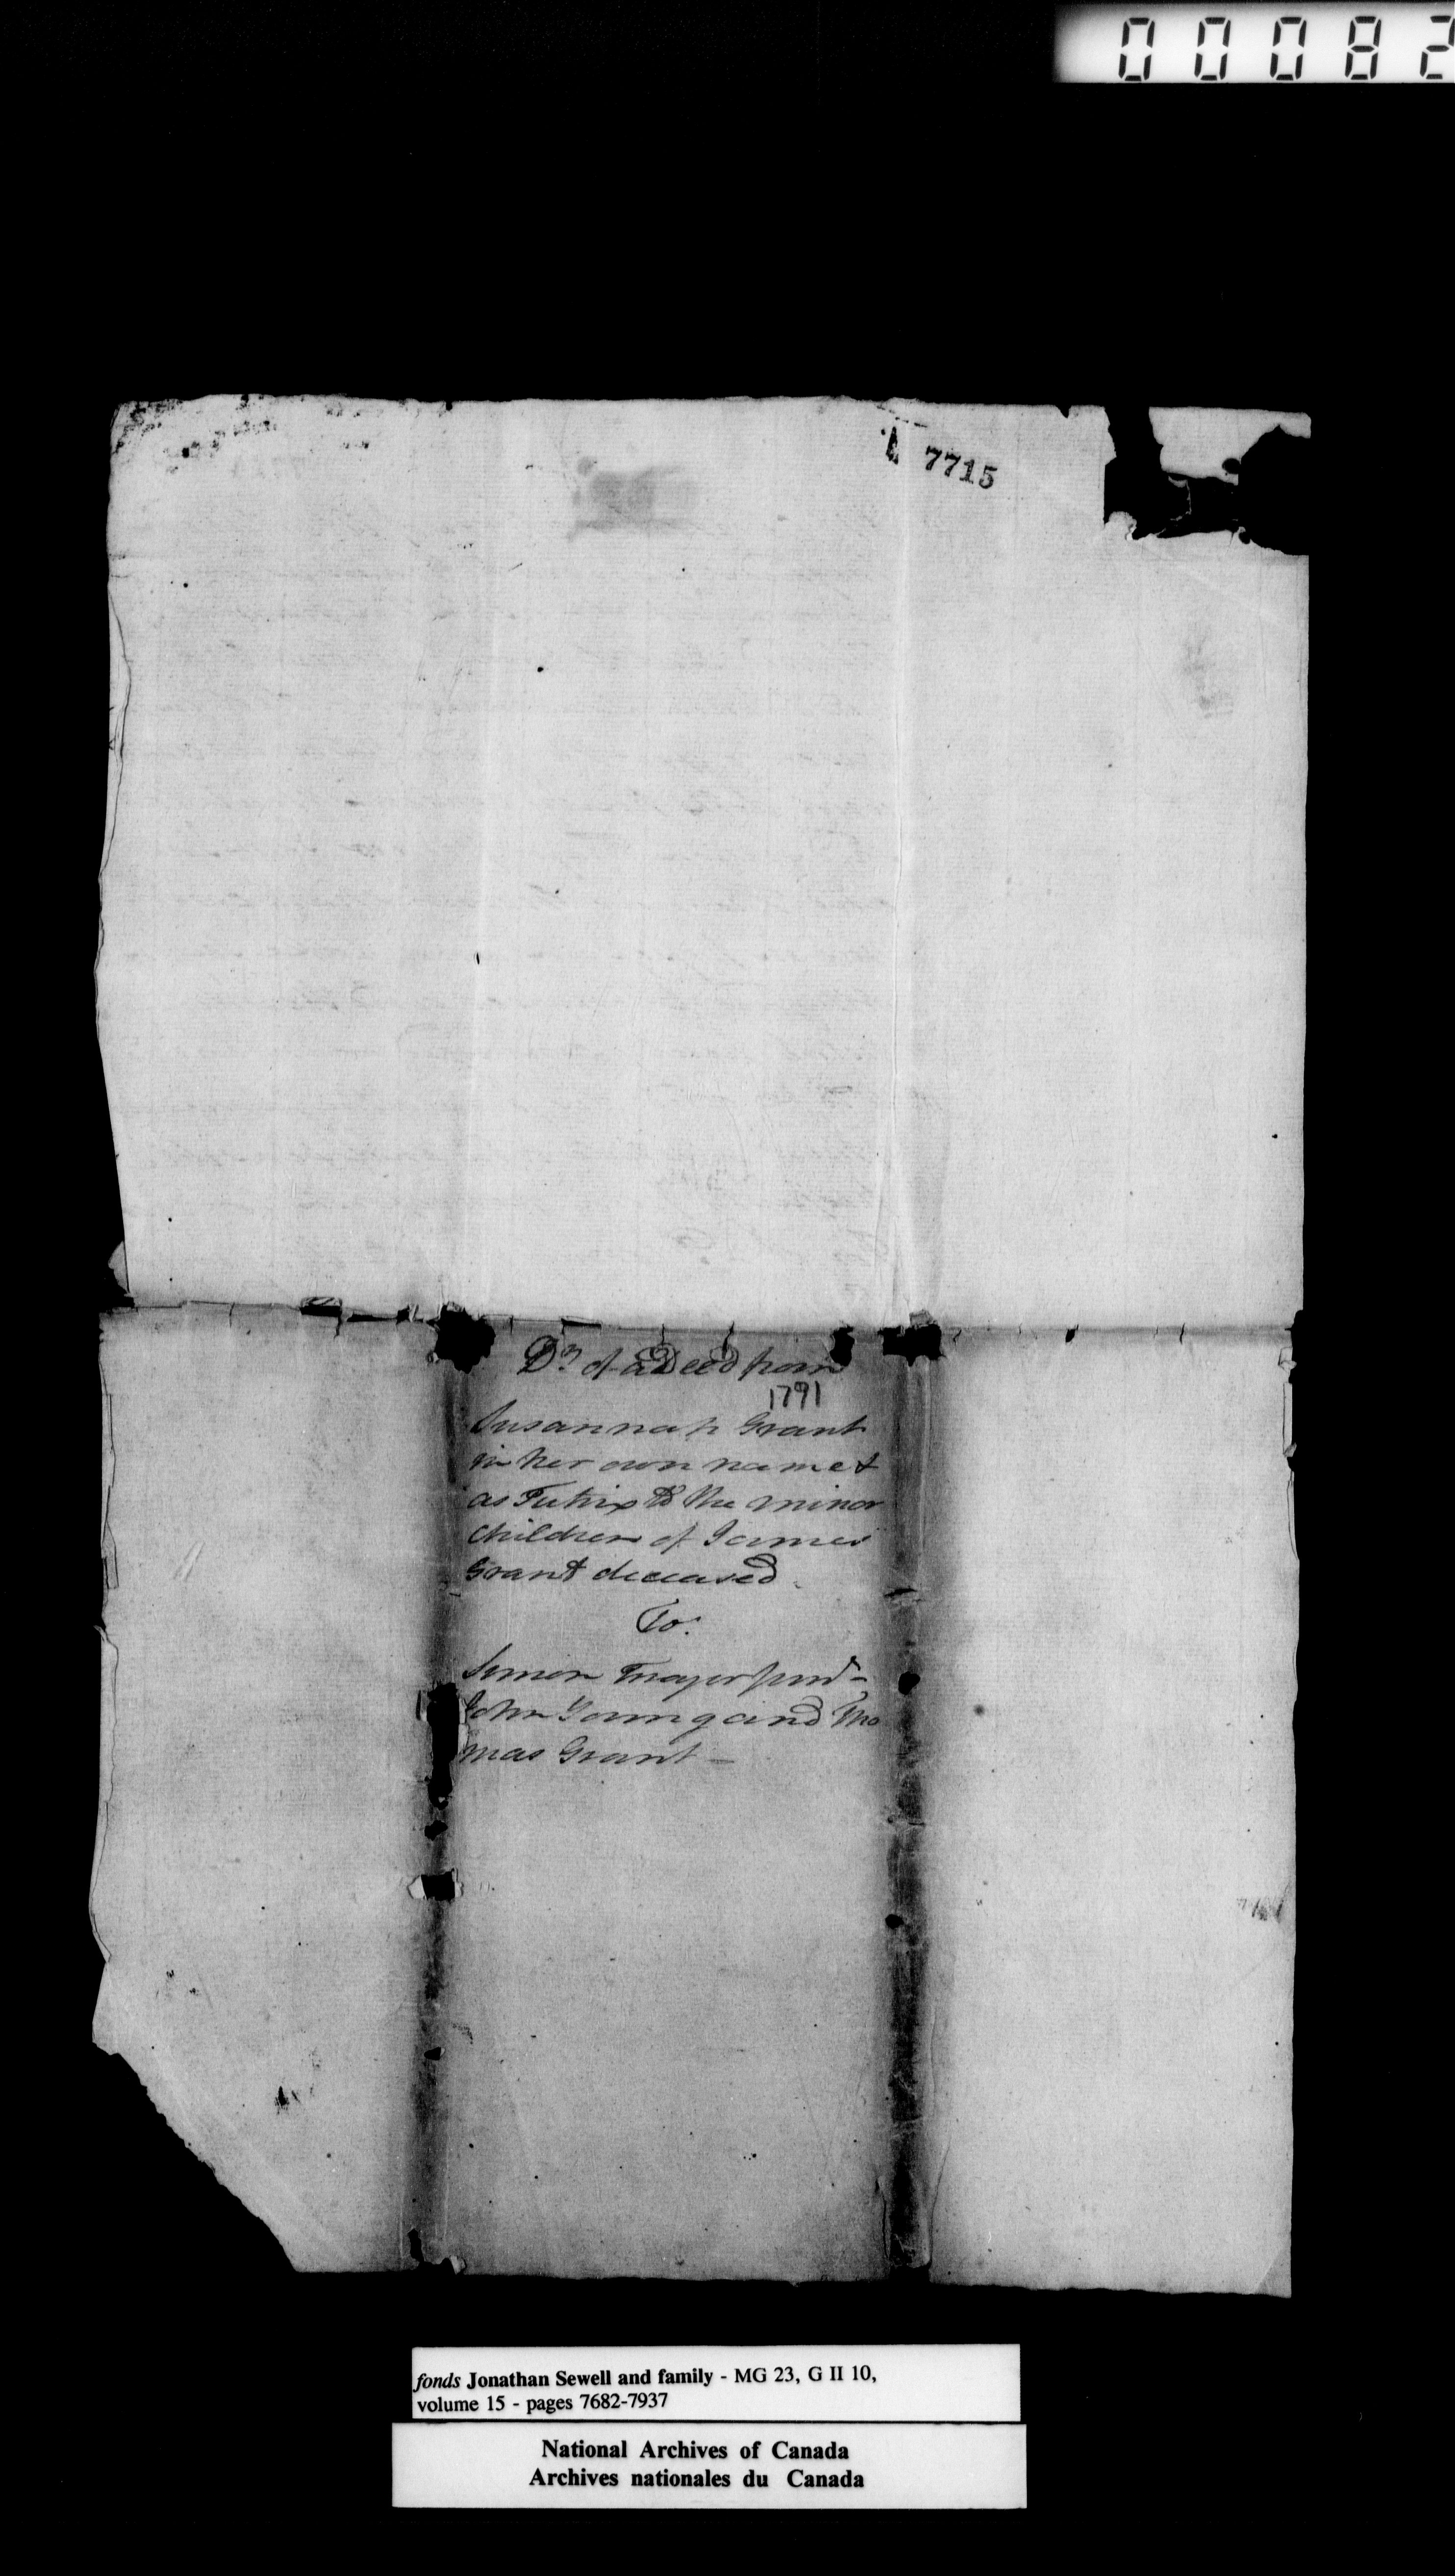 00082
7715
Dt. of a Deed from
1791
Susannah Grant
in her own name &
as Tutrix to the minor
children of James
Grant deceased.
To.
Simon Fraser junr.
John Young and Tho
mas Grant —
fonds Jonathan Sewell and family - MG 23, G II 10,
volume 15 - pages 7682-7937
National Archives of Canada
Archives nationales du Canada